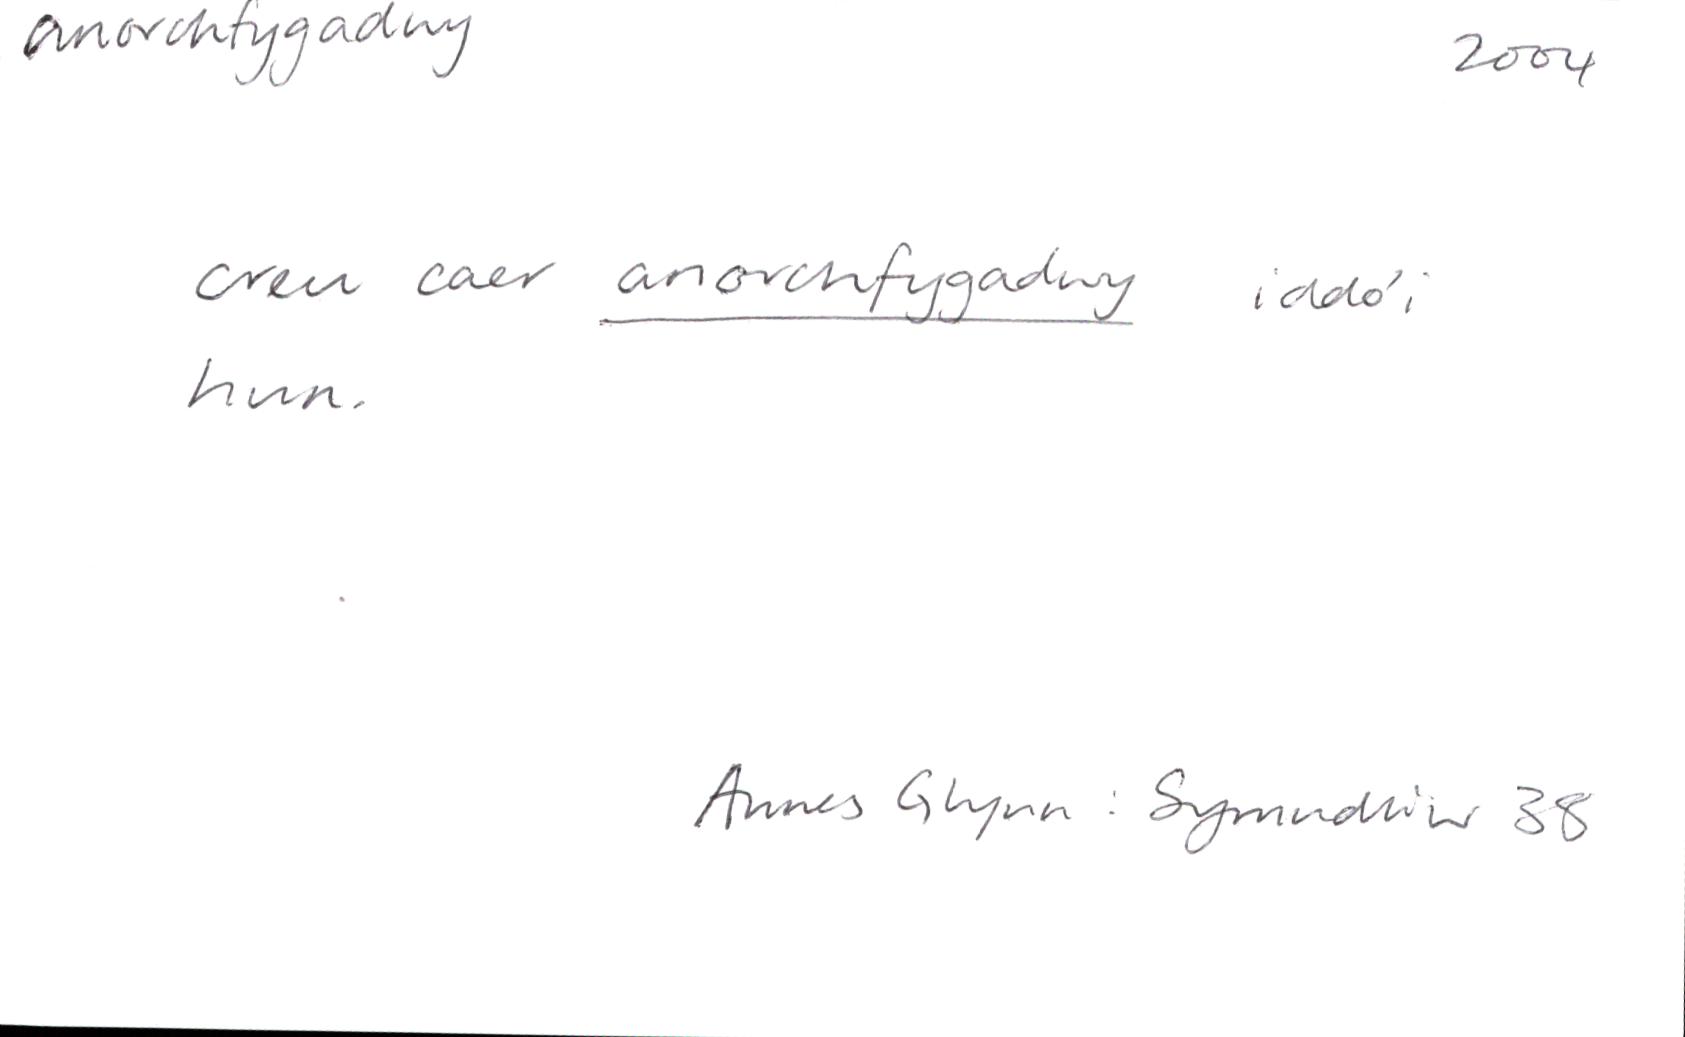 anorchfygadwy 2004
creu caer anorchfygadwy iddo'i
hun.
Annes Glynn : Symudliw 38